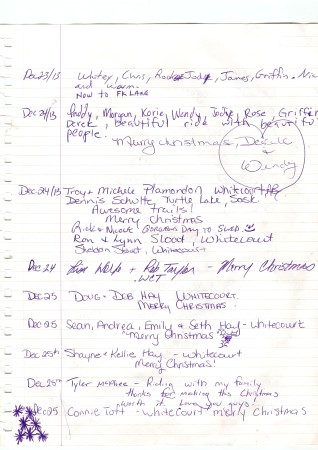 Dec 23/13 Whitey, Chris, Jody, James, Griffin, Nic
and warm.
NOW TO FK LAKE
Dec 24/13 Paddy, Morgan, Korie, Wendy, Jodye, Rose, Griffen
Derek, beautiful ride with beautiful
people.
Merry christmas, Derek
&
Wendy
Dec 24/13 Troy + Michele Plamondon Whitecourt, AB
Dennis Schultz, Turtle Lake, Sask.
Awesome trails!
Merry Christmas
Rick & Nicole Gorgeous Day to Sled
Ron & Lynn Sloot, Whitecourt
Sheldon Sloot, Whitecourt
Dec 24 + Rob Taylor - Merry Christmas
WCT
Dec 25 Doug + Deb Hay Whitecourt.
Merry Christmas.
Dec 25 Sean, Andrea, Emily & Seth Hay - Whitecourt
Merry Christmas
Dec 25th Shayne + Kellie Hay - Whitecourt
Merry Christmas!
Dec 25th Tyler McPhee - Riding with my family
thanks for making this Christmas
worth it. Love you guys!
Dec 25 Connie Tutt - Whitecourt Merry Christmas